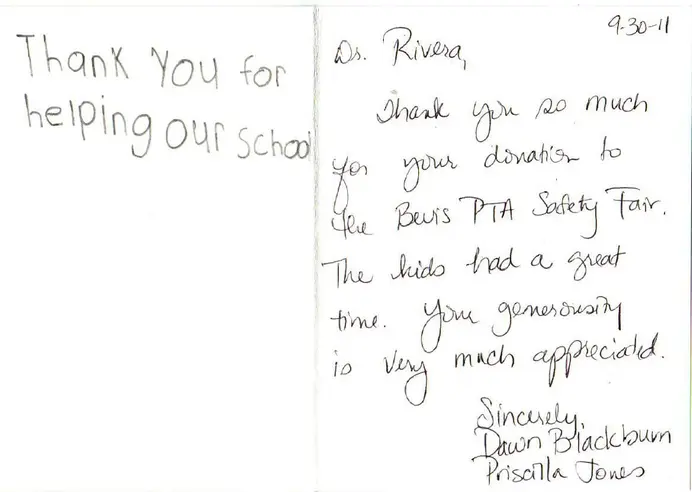 Thank You for
helping our school
9-30-11
Dr. Rivera,
Thank you so much
for your donation to
the Bevis PTA Safety Fair.
The kids had a great
time. Your generousity
is very much appreciated.
Sincerely,
Dawn Blackburn
Priscilla Jones